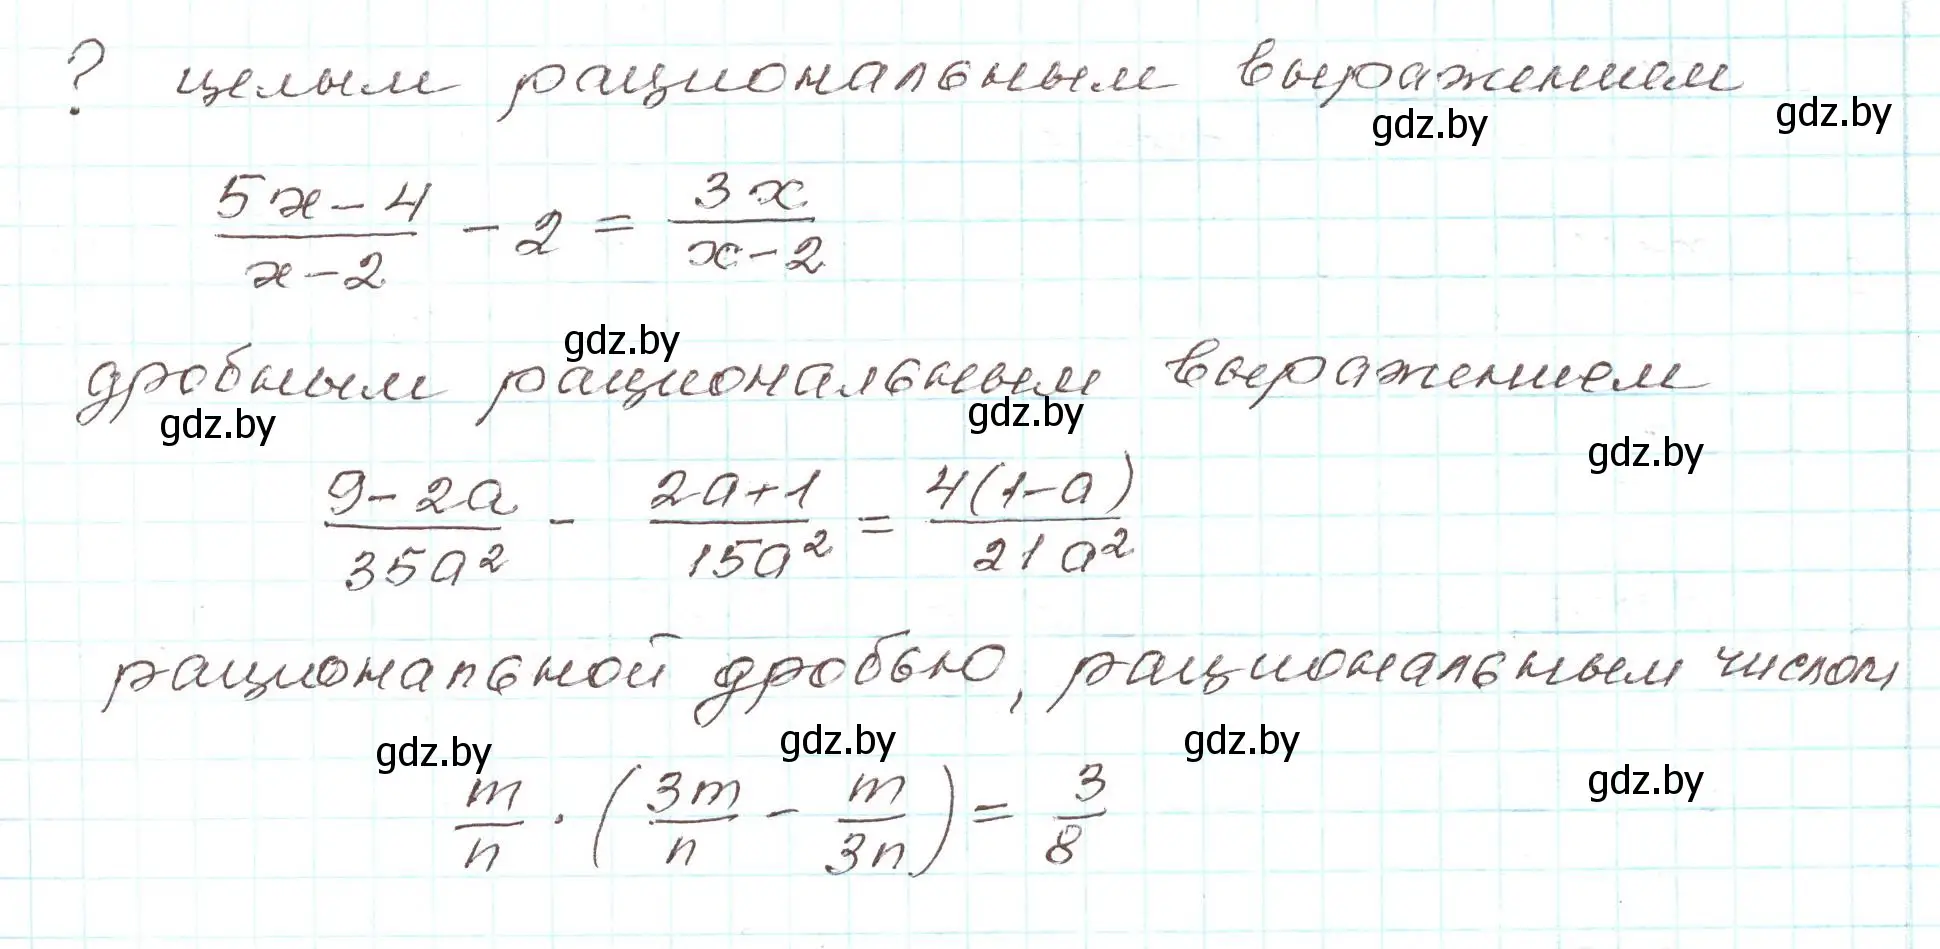 ? целым рациональным выражением
gdz.by gdz.by
(5x-4)/(x-2) - 2 = 3x/(x-2)
gdz.by
дробным рациональным выражением
gdz.by gdz.by gdz.by
(9-2a)/(35a²) - (2a+1)/(15a²) = 4(1-a)/(21a²)
рациональной дробью, рациональным числом
gdz.by gdz.by gdz.by gdz.by
m/n · (3m/n - m/3n) = 3/8